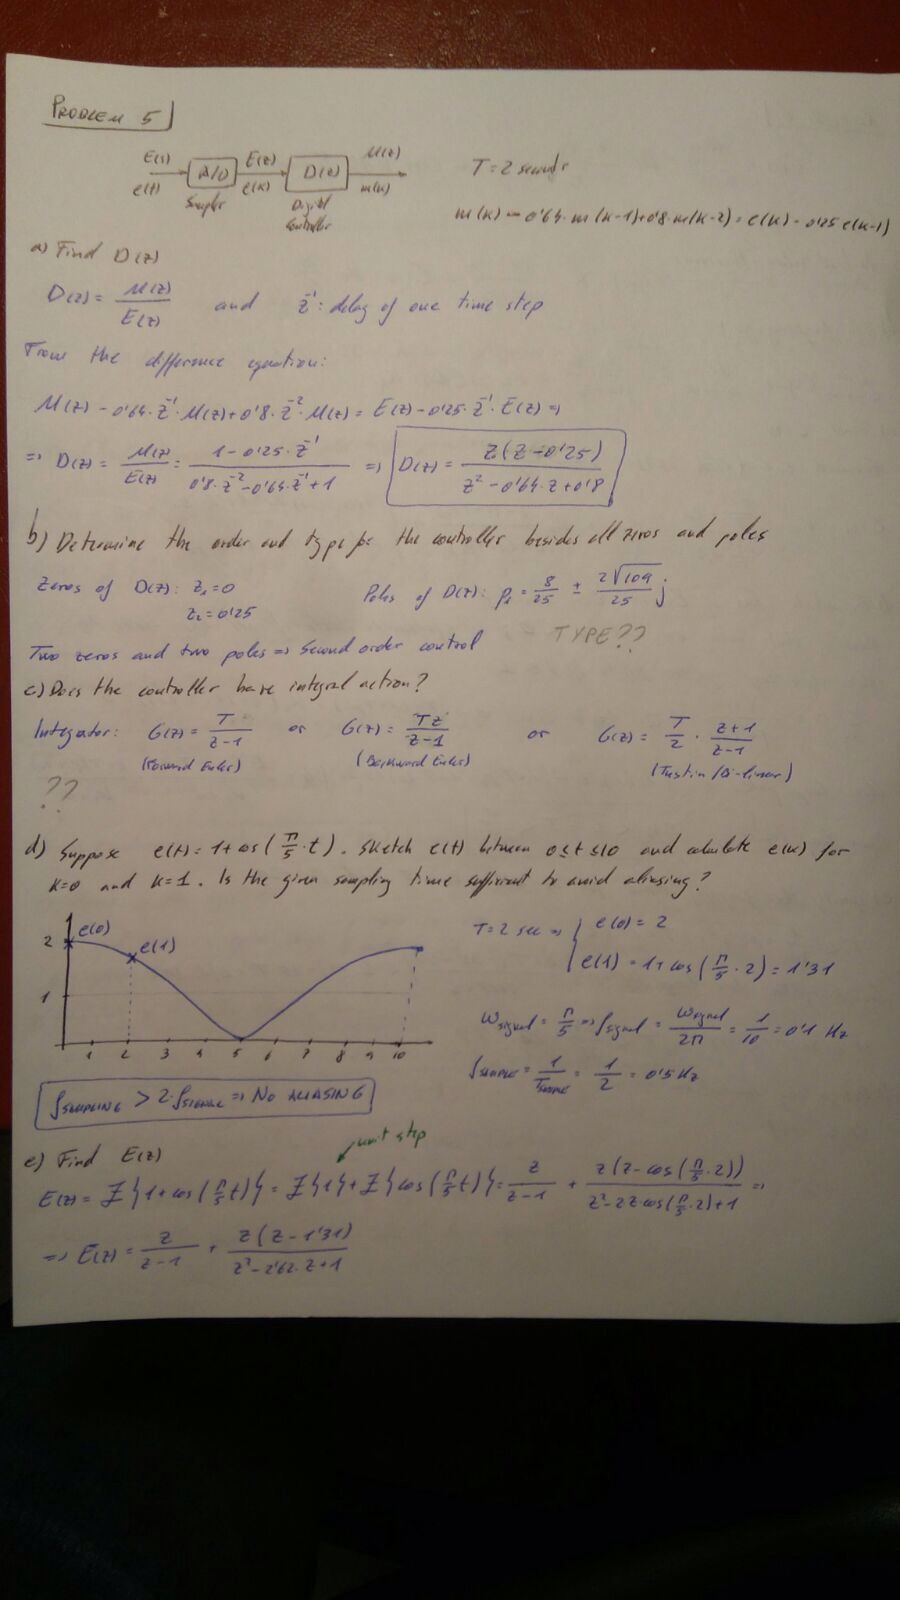 PROBLEM 5
E(s) E(z) M(z)
A/D D(z)
e(t) e(k) m(k)
Sampler Digital controller
T = 2 seconds
m(k) - 0'64·m(k-1)+0'8·m(k-2) = e(k) - 0'25 e(k-1)
a) Find D(z)
D(z) = M(z)/E(z) and z⁻¹: delay of one time step
From the difference equation:
M(z) - 0'64·z⁻¹·M(z) + 0'8·z⁻²·M(z) = E(z) - 0'25·z⁻¹·E(z) =>
=> D(z) = M(z)/E(z) = (1 - 0'25·z⁻¹)/(0'8·z⁻² - 0'64·z⁻¹ + 1) => D(z) = z(z - 0'25)/(z² - 0'64·z + 0'8)
b) Determine the order and type for the controller besides all zeros and poles
Zeros of D(z): z₁=0 Poles of D(z): p₁ = 8/25 ± 2√109/25 j
z₂=0'25
TYPE??
Two zeros and two poles => Second order control
c) Does the controller have integral action?
Integrator: G(z) = T/(z-1) or G(z) = Tz/(z-1) or G(z) = T/2 · (z+1)/(z-1)
(Forward Euler) (Backward Euler) (Tustin/Bi-linear)
??
d) Suppose e(t) = 1+cos(π/5·t). Sketch e(t) between 0≤t≤10 and calculate e(k) for
k=0 and k=1. Is the given sampling time sufficient to avoid aliasing?
2 e(0) e(1)
1
1 2 3 4 5 6 7 8 9 10
T=2 sec => { e(0) = 2
e(1) = 1+cos(π/5·2) = 1'31
ω signal = π/5 => f signal = ω signal/2π = 1/10 = 0'1 Hz
f sample = 1/T sample = 1/2 = 0'5 Hz
f SAMPLING > 2·f SIGNAL => NO ALIASING
e) Find E(z)
unit step
E(z) = Z{1+cos(π/5 t)} = Z{1} + Z{cos(π/5 t)} = z/(z-1) + z(z-cos(π/5·2))/(z²-2z cos(π/5·2)+1) =>
=> E(z) = z/(z-1) + z(z-1'31)/(z²-2'62·z+1)